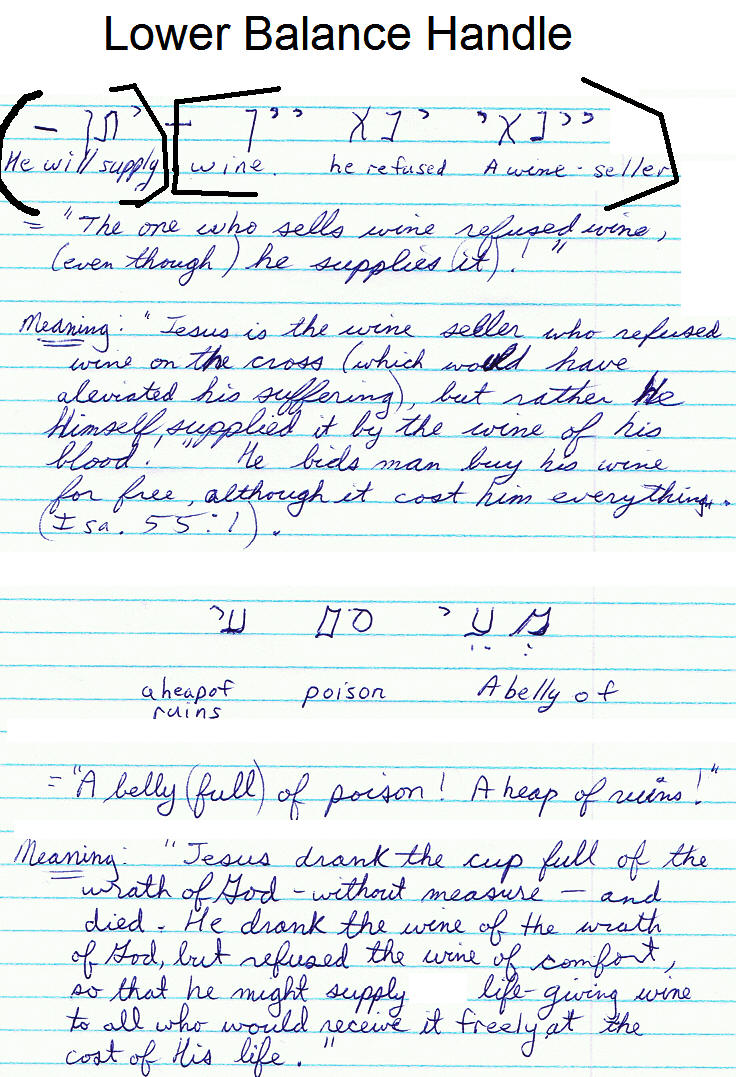 Lower Balance Handle
יין - יתן -
He will supply wine. he refused A wine-seller
= "The one who sells wine refused wine,
(even though) he supplies (it)!"
Meaning: "Jesus is the wine seller who refused
wine on the cross (which would have
aleviated his suffering), but rather He
Himself, supplied it by the wine of his
blood!" He bids man buy his wine
for free, although it cost him everything..
(Isa. 55:1).
מעי סם עי
a heap of poison A belly of
ruins
= "A belly (full) of poison! A heap of ruins!"
Meaning: "Jesus drank the cup full of the
wrath of God - without measure - and
died. He drank the wine of the wrath
of God, but refused the wine of comfort,
so that he might supply life-giving wine
to all who would receive it freely at the
cost of His life."